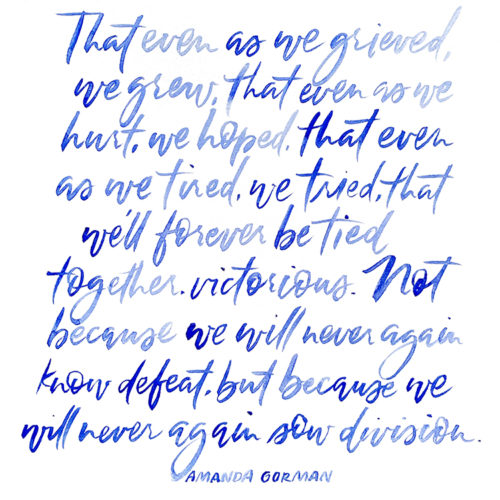 That even as we grieved,
we grew, that even as we
hurt, we hoped, that even
as we tired, we tried, that
we'll forever be tied
together. victorious. Not
because we will never again
know defeat, but because we
will never again sow division.
AMANDA GORMAN